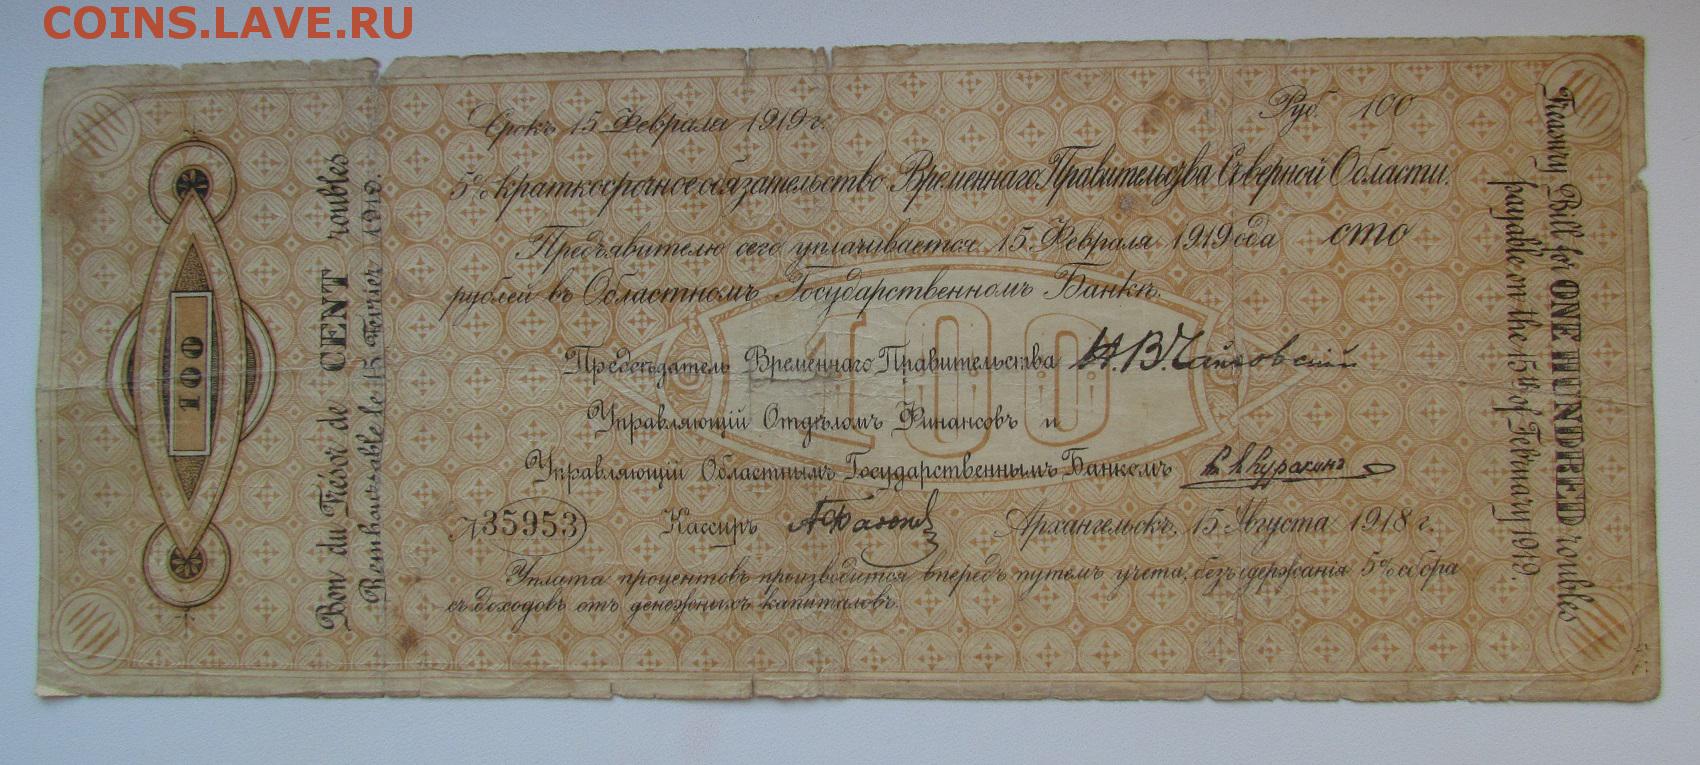 COINS.LAVE.RU
Срокъ 15 Февраля 1919 г. Руб. 100
5% краткосрочное обязательство Временнаго Правительства Сѣверной Области.
Предъявителю сего уплачивается 15 Февраля 1919 года сто
рублей въ Областномъ Государственномъ Банкѣ.
100
Предсѣдатель Временнаго Правительства Н.В.Чайковскій
Управляющій Отдѣломъ Финансовъ и
Управляющій Областнымъ Государственнымъ Банкомъ Кн. Куракинъ
№ 35953 Кассиръ Архангельскъ, 15 Августа 1918 г.
Уплата процентовъ производится впередъ путемъ учета, безъ удержанія 5% сбора
съ доходовъ отъ денежныхъ капиталовъ.
100
Bon du Trésor de CENT roubles
Remboursable le 15 Fevrier 1919.
Treasury Bill for ONE HUNDRED roubles
payable on the 15th of February 1919.
100
100
100
100